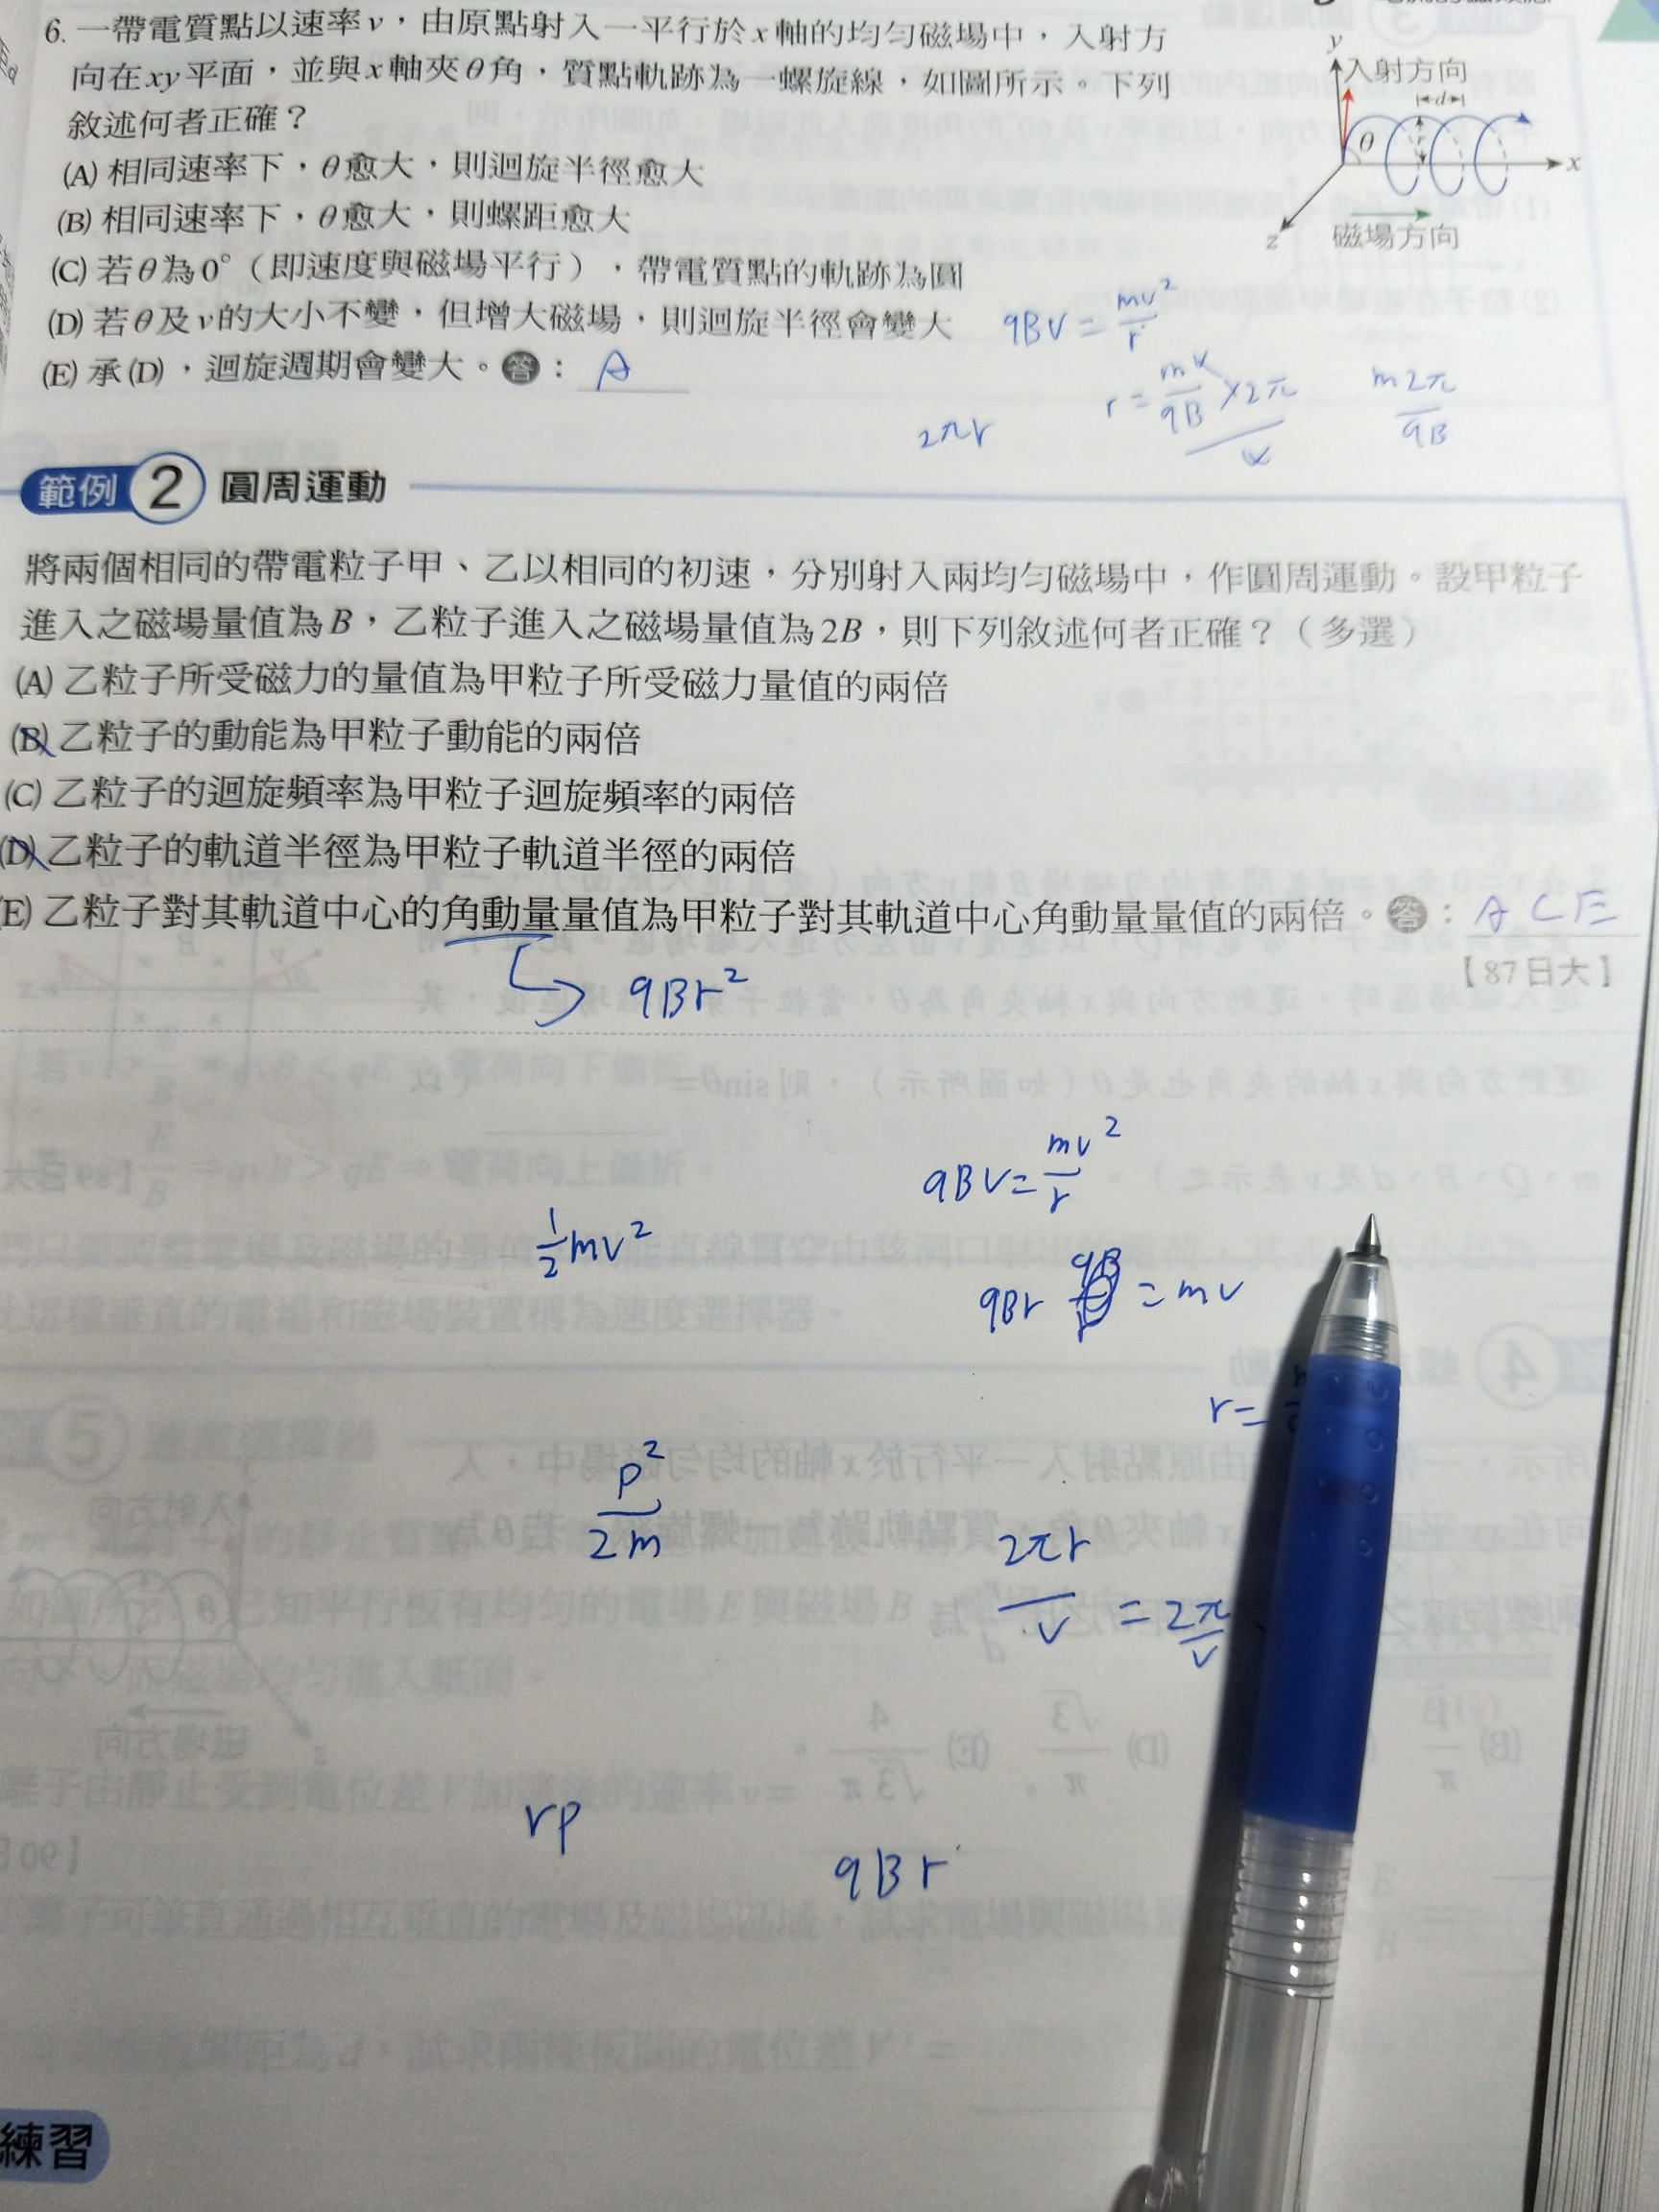 6. 一帶電質點以速率v，由原點射入一平行於x軸的均勻磁場中，入射方
向在xy平面，並與x軸夾θ角，質點軌跡為一螺旋線，如圖所示。下列
敘述何者正確？
(A) 相同速率下，θ愈大，則迴旋半徑愈大
(B) 相同速率下，θ愈大，則螺距愈大
(C) 若θ為0°（即速度與磁場平行），帶電質點的軌跡為圓
(D) 若θ及v的大小不變，但增大磁場，則迴旋半徑會變大
(E) 承(D)，迴旋週期會變大。答：A
y
入射方向
d
r
θ
x
z
磁場方向
qBV = mv²/r
r = mv/qB ×2π / v
m2π/qB
2πr
範例 2 圓周運動
將兩個相同的帶電粒子甲、乙以相同的初速，分別射入兩均勻磁場中，作圓周運動。設甲粒子
進入之磁場量值為B，乙粒子進入之磁場量值為2B，則下列敘述何者正確？（多選）
(A) 乙粒子所受磁力的量值為甲粒子所受磁力量值的兩倍
(B) 乙粒子的動能為甲粒子動能的兩倍
(C) 乙粒子的迴旋頻率為甲粒子迴旋頻率的兩倍
(D) 乙粒子的軌道半徑為甲粒子軌道半徑的兩倍
(E) 乙粒子對其軌道中心的角動量量值為甲粒子對其軌道中心角動量量值的兩倍。答：A C E
【87日大】
qBr²
qBV = mv²/r
½mv²
qBr = mv
r =
P²/2m
2πr/v = 2π/v
rp
qBr
練習